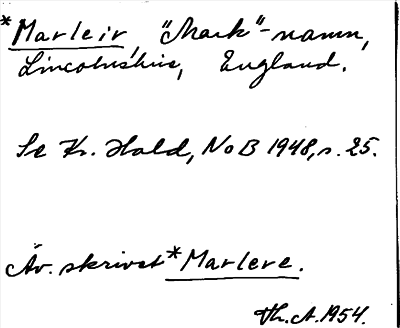 *Marleir, "Mark"-namn,
Lincolnshire, England.
Se Kr. Hald, NoB 1948, s. 25.
Äv. skrivet *Marlere.
Th. A. 1954.